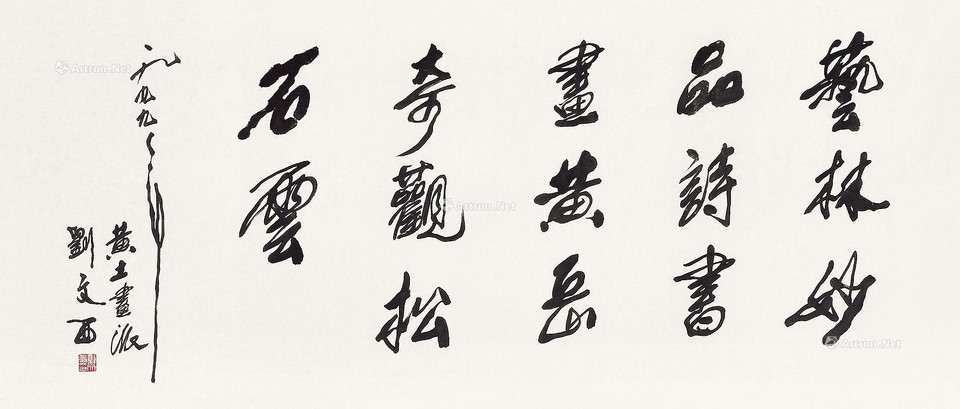 藝林妙
品詩書
畫黃岳
奇觀松
石雲
一九九九年
黃土畫派
劉文西
Artron.Net
Artron.Net
Artron.Net